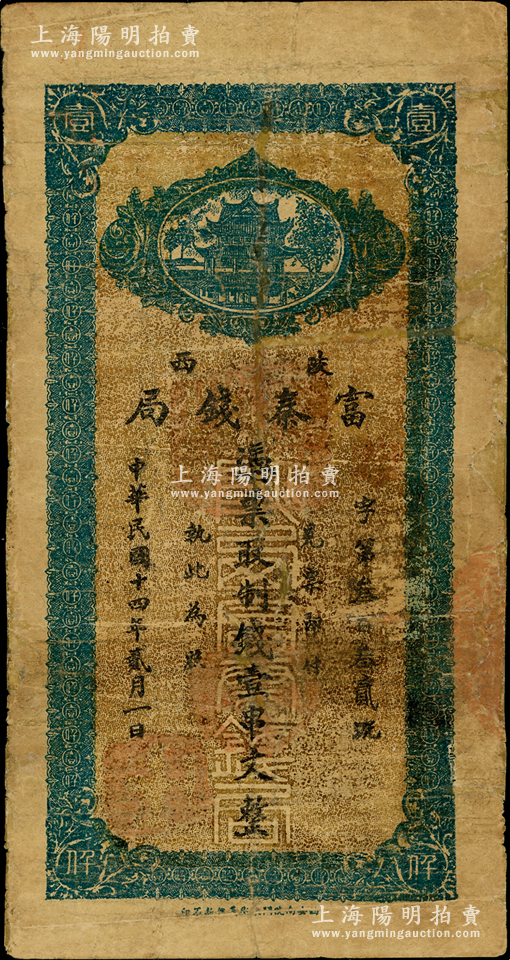 上海陽明拍賣
www.yangmingauction.com
壹 壹
陝西
富秦錢局
字第叁百若貳號
見票即付
憑票取制錢壹串文整
執此為照
中華民國十四年貳月一日
上海陽明拍賣
www.yangmingauction.com
仟 仟
上海陽明拍賣
www.yangmingauction.com